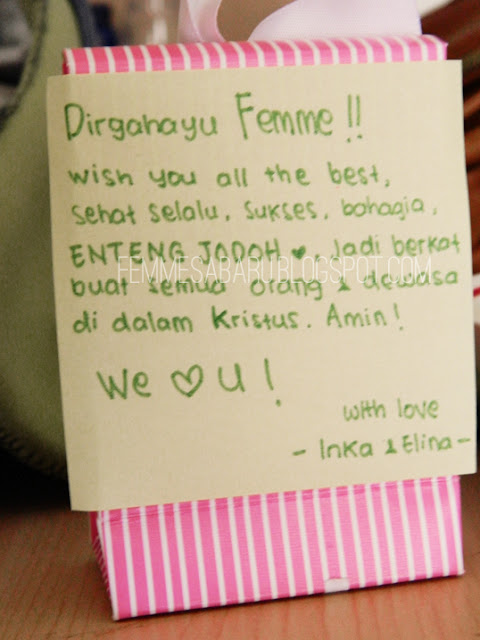 Dirgahayu Femme!!
wish you all the best,
sehat selalu, sukses, bahagia,
ENTENG JODOH ♥, Jadi berkat
FEMMESABARU.BLOGSPOT.COM
buat semua orang & dewasa
di dalam Kristus. Amin!
We ♡ U!
with love
- Inka & Elina -